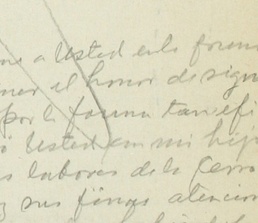 a Usted en la forma
el honor de sig
por la forma tan efi
Usted con mi hijo
labores de la Cerro
y sus finas atencion